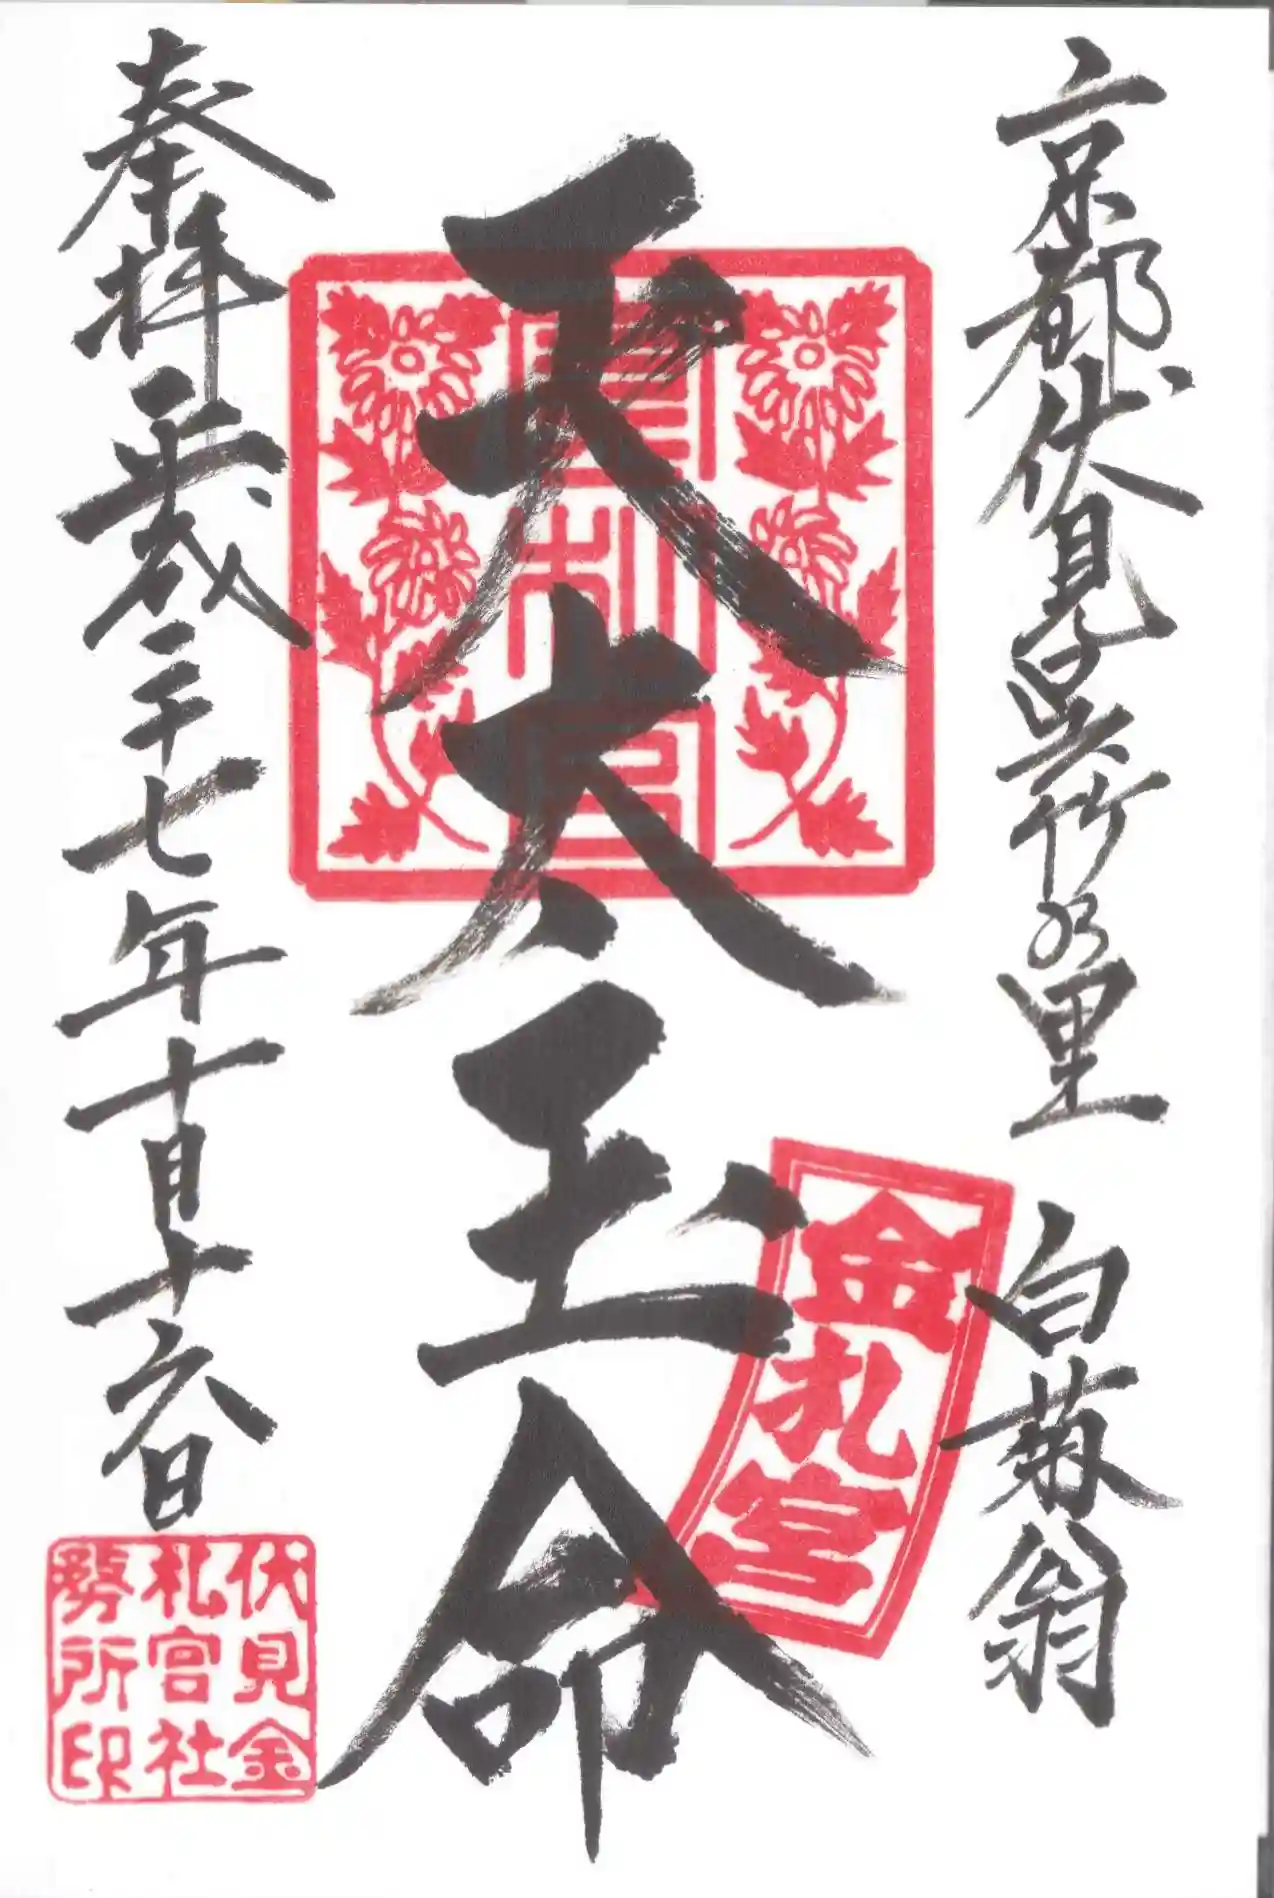 京都伏見呉竹乃里 白菊翁
天太玉命
金札宮
金札宮
奉拝 平成二十七年十月十六日
伏見金
札宮社
務所印